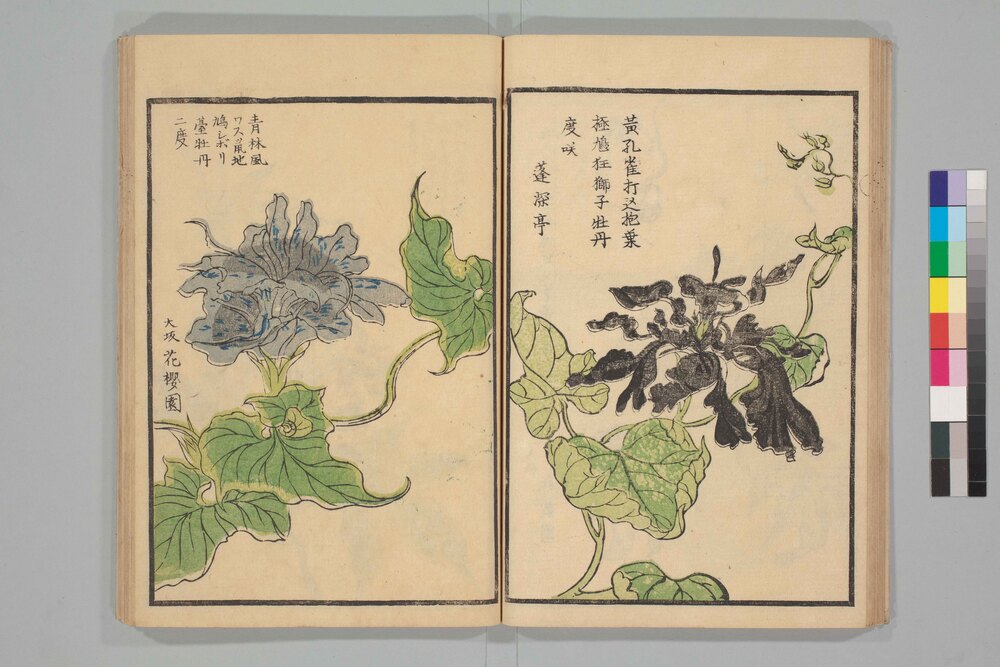 黃孔雀打込抱葉
極鳩狂獅子牡丹
度咲
蓬深亭
青林風
ワスッ鼠地
鳩シボリ
臺牡丹
二度
大坂 花櫻園